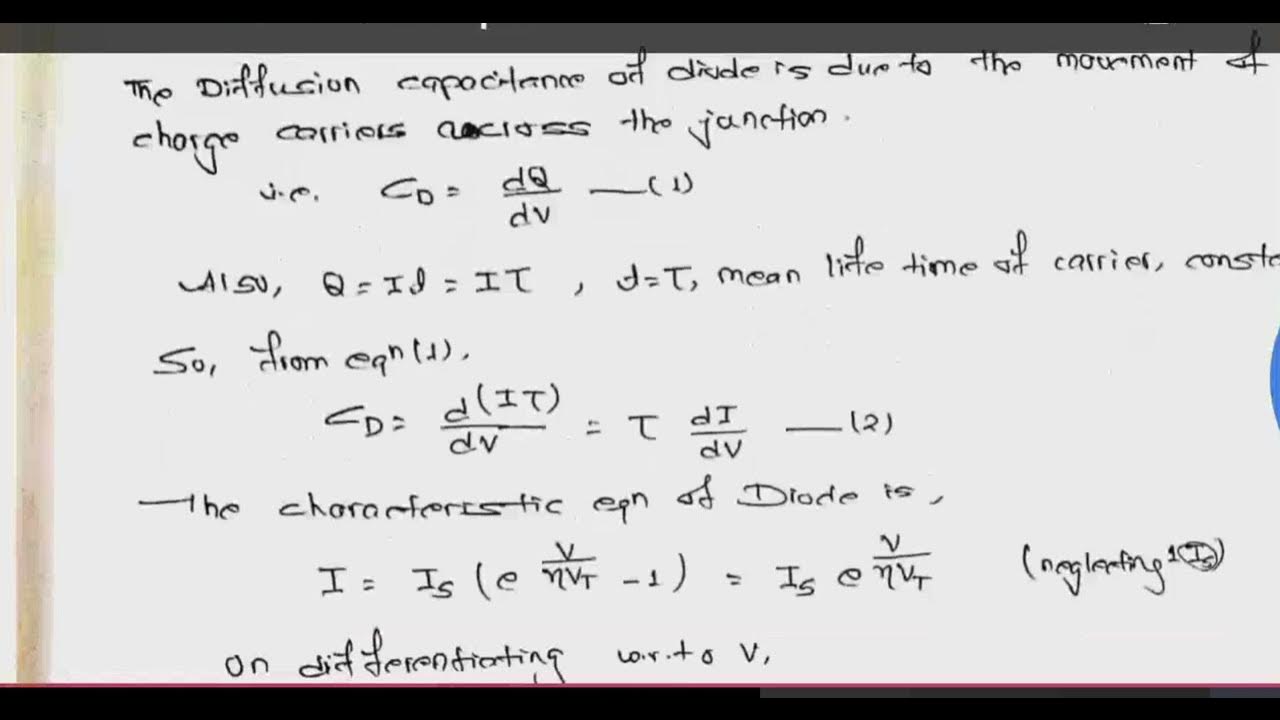 The Diffusion capacitance of diode is due to the movement of
charge carriers across the junction.
i.e. C_D = dQ/dV —(1)
Also, Q = It = Iτ , t=τ, mean life time of carrier, consta
So, from eqⁿ(1),
C_D = d(Iτ)/dV = τ dI/dV —(2)
The characteristic eqn of Diode is,
I = I_S (e^{V/ηV_T} - 1) = I_S e^{V/ηV_T} (neglecting 1(I_S))
on differentiating w.r.to V,